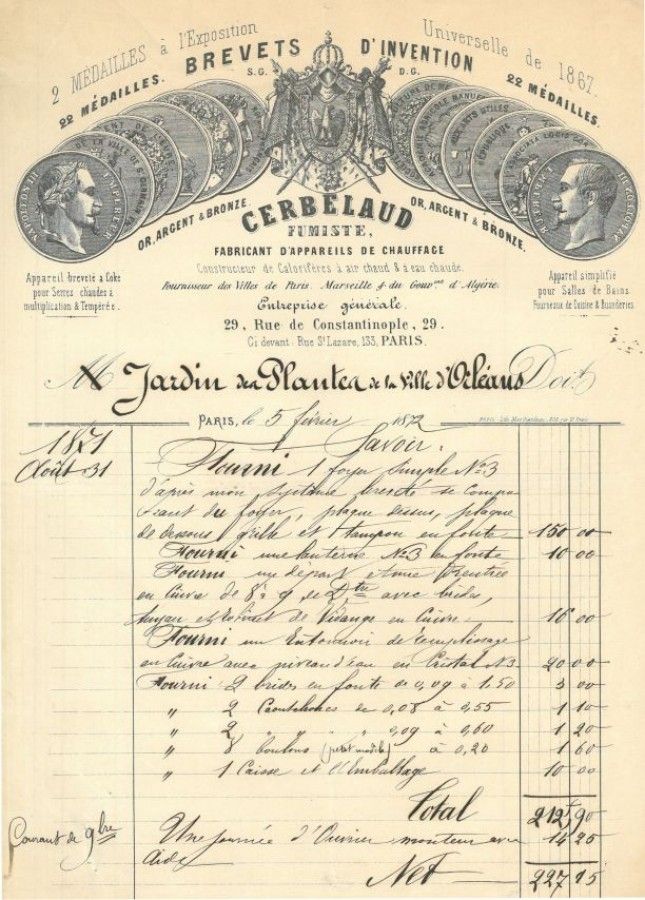 2 MÉDAILLES à l'Exposition Universelle de 1867.
22 MÉDAILLES. BREVETS D'INVENTION 22 MÉDAILLES.
S.G. D.G.
NAPOLEON III EMPEREUR
OR, ARGENT & BRONZE. OR, ARGENT & BRONZE.
CERBELAUD
FUMISTE,
FABRICANT D'APPAREILS DE CHAUFFAGE
Constructeur de Calorifères à air chaud & à eau chaude.
Fournisseur des Villes de Paris, Marseille & du Gouv.nt d'Algérie.
Entreprise générale.
29, Rue de Constantinople, 29.
Ci devant: Rue St Lazare, 133, PARIS.
Appareil breveté à Coke
pour Serres chaudes à
multiplication & Tempérée.
Appareil simplifié
pour Salles de Bains.
Fourneaux de Cuisine & Buanderies.
M Jardin des Plantes de la Ville d'Orléans Doit
PARIS, le 5 février 1872
1871 Savoir:
Août 31 Fourni 1 foyer simple No 3
d'après mon système breveté se compo
sant du foyer, plaque dessus, plaque
de dessous grille et tampon en fonte 150 00
Fourni une lanterne No 3 en fonte 10 00
Fourni un départ et une rentrée
en Cuivre de 8c 9 de Dtre avec brides,
tuyau et robinet de Vidange en Cuivre 16 00
Fourni un Entonnoir de remplissage
en Cuivre avec niveau d'eau en Cristal No 3 20 00
Fourni 2 brides en fonte de 0,09 à 1,50 3 00
" 2 Caoutchoucs de 0,08 à 0,55 1 10
" 2 " " 0,09 à 0,60 1 20
" 8 boulons (petit modèle) à 0,20 1 60
" 1 Caisse et l'Emballage 10 00
Total 212 90
Courant de 9bre Une journée d'Ouvrier monteur avec 14 25
Aide
Net 227 15